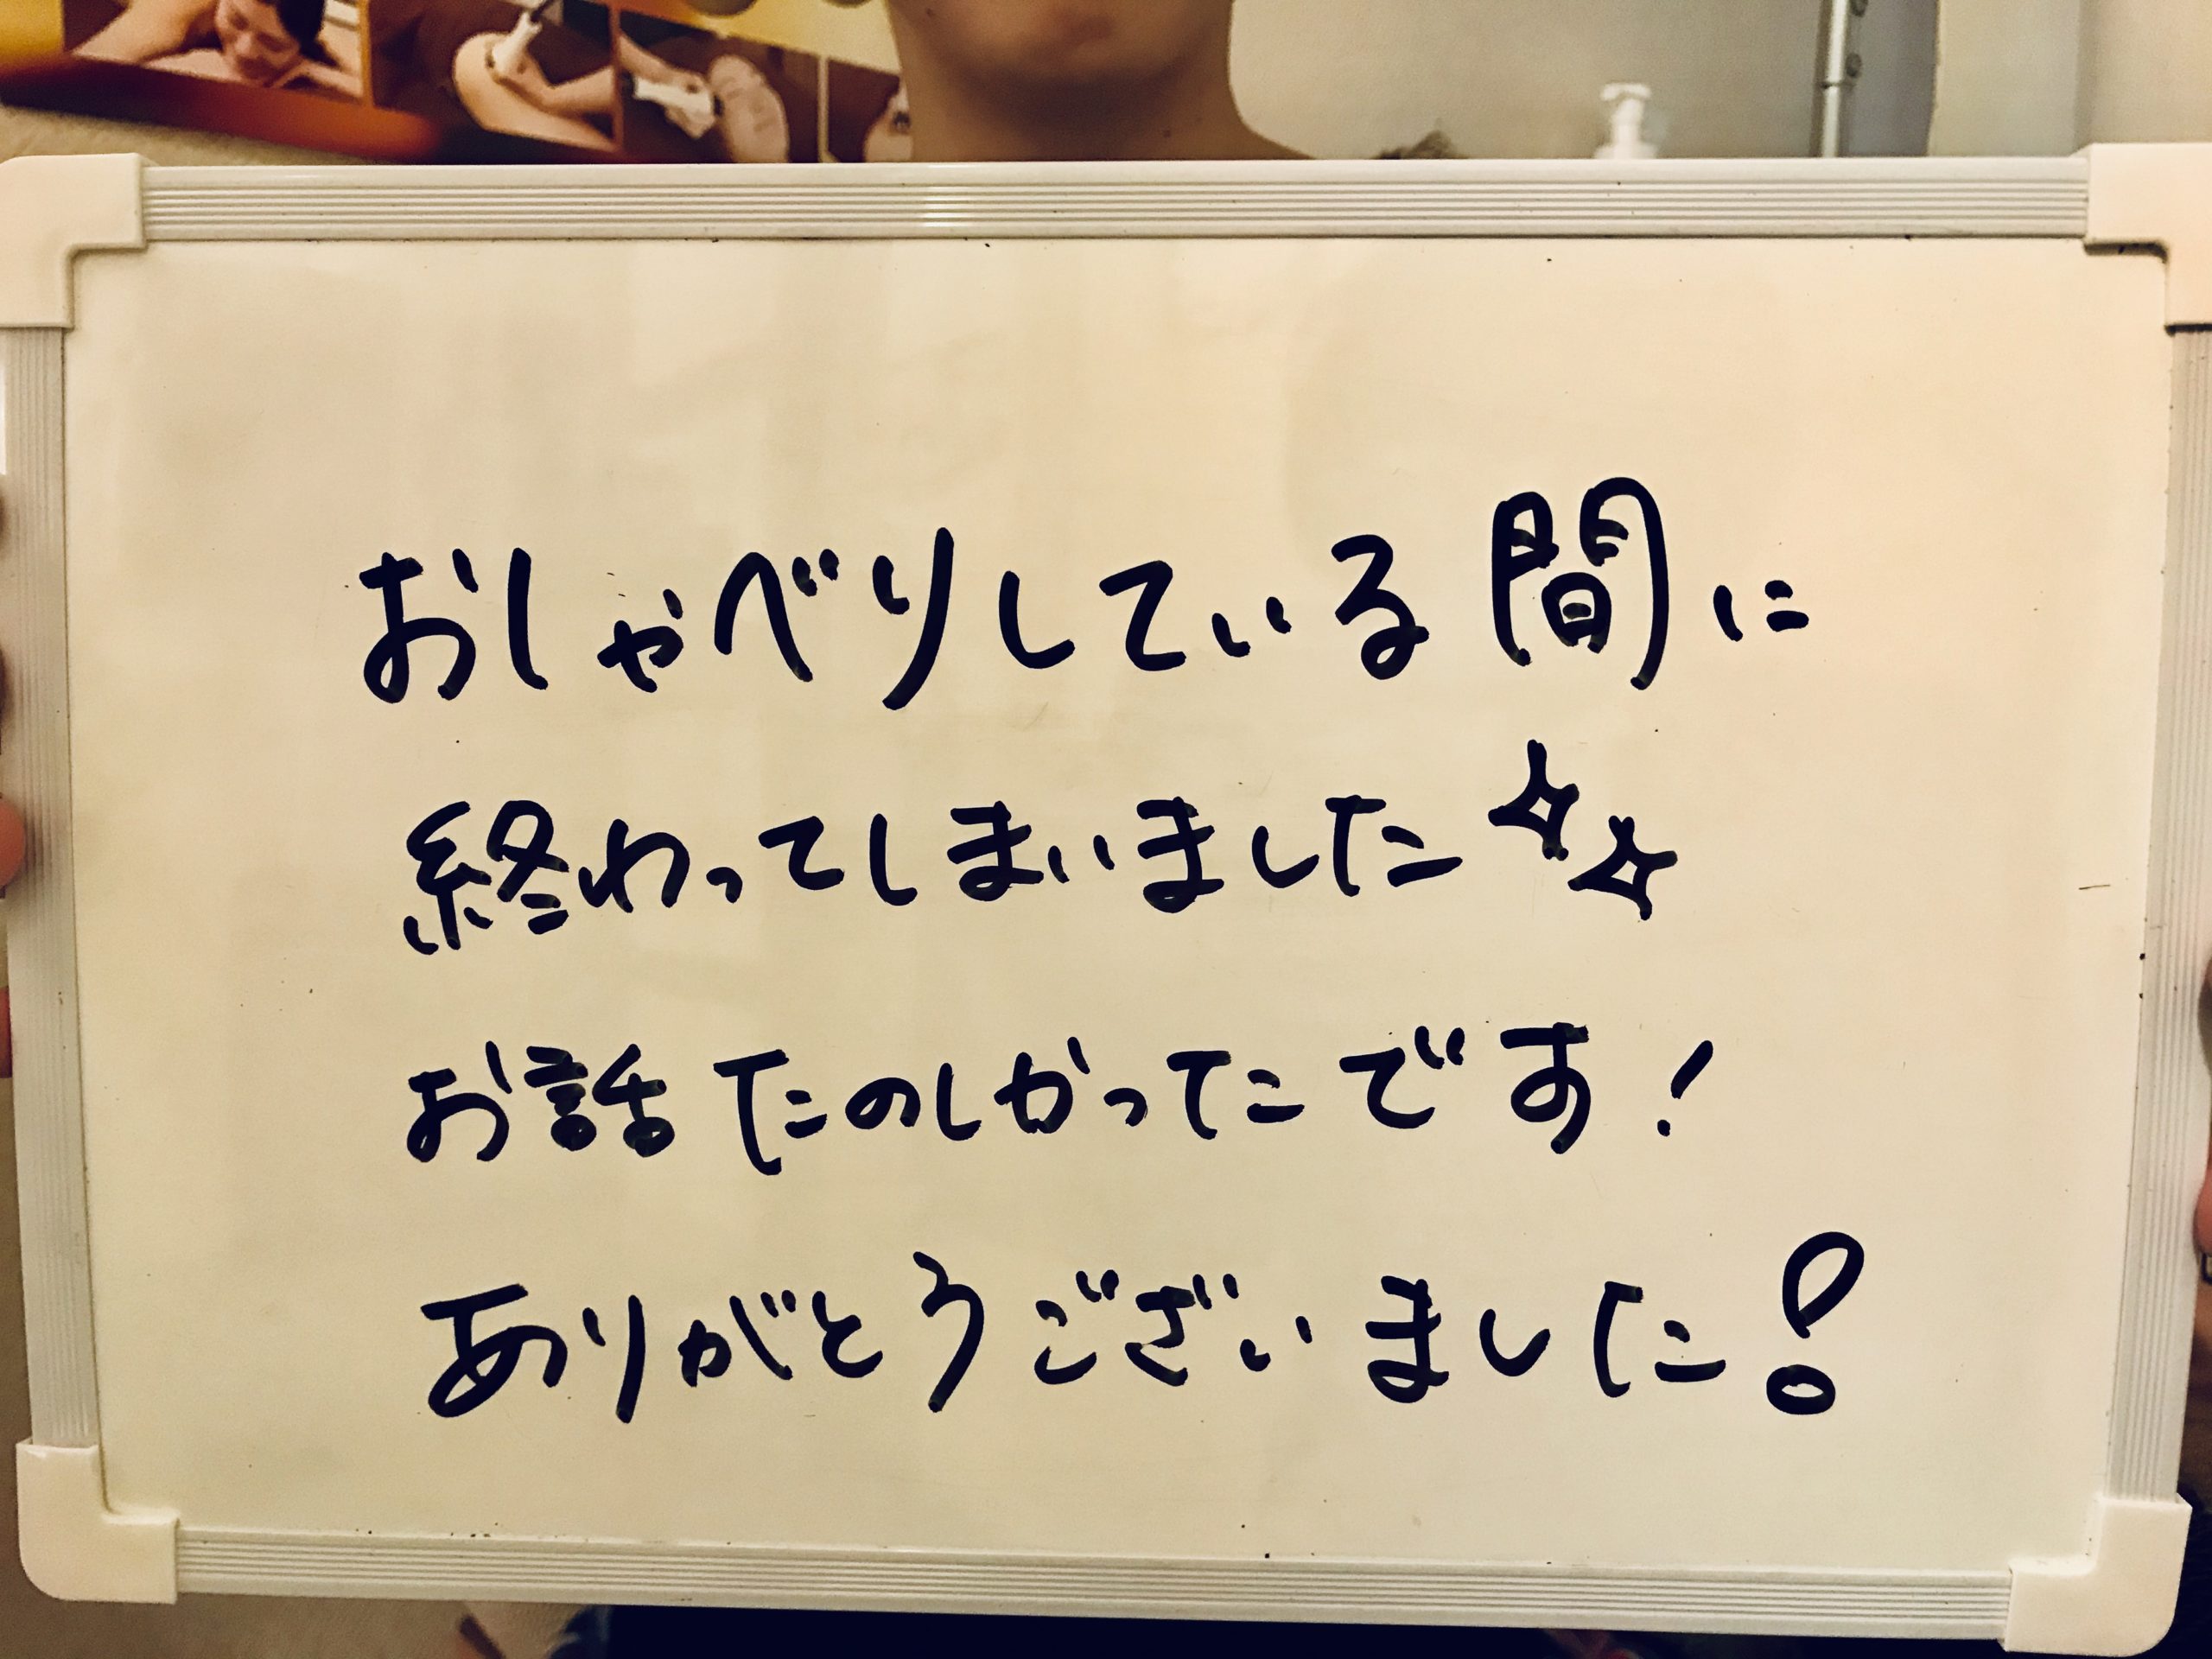 おしゃべりしている間に
終わってしまいました✨
お話たのしかったです!
ありがとうございました!